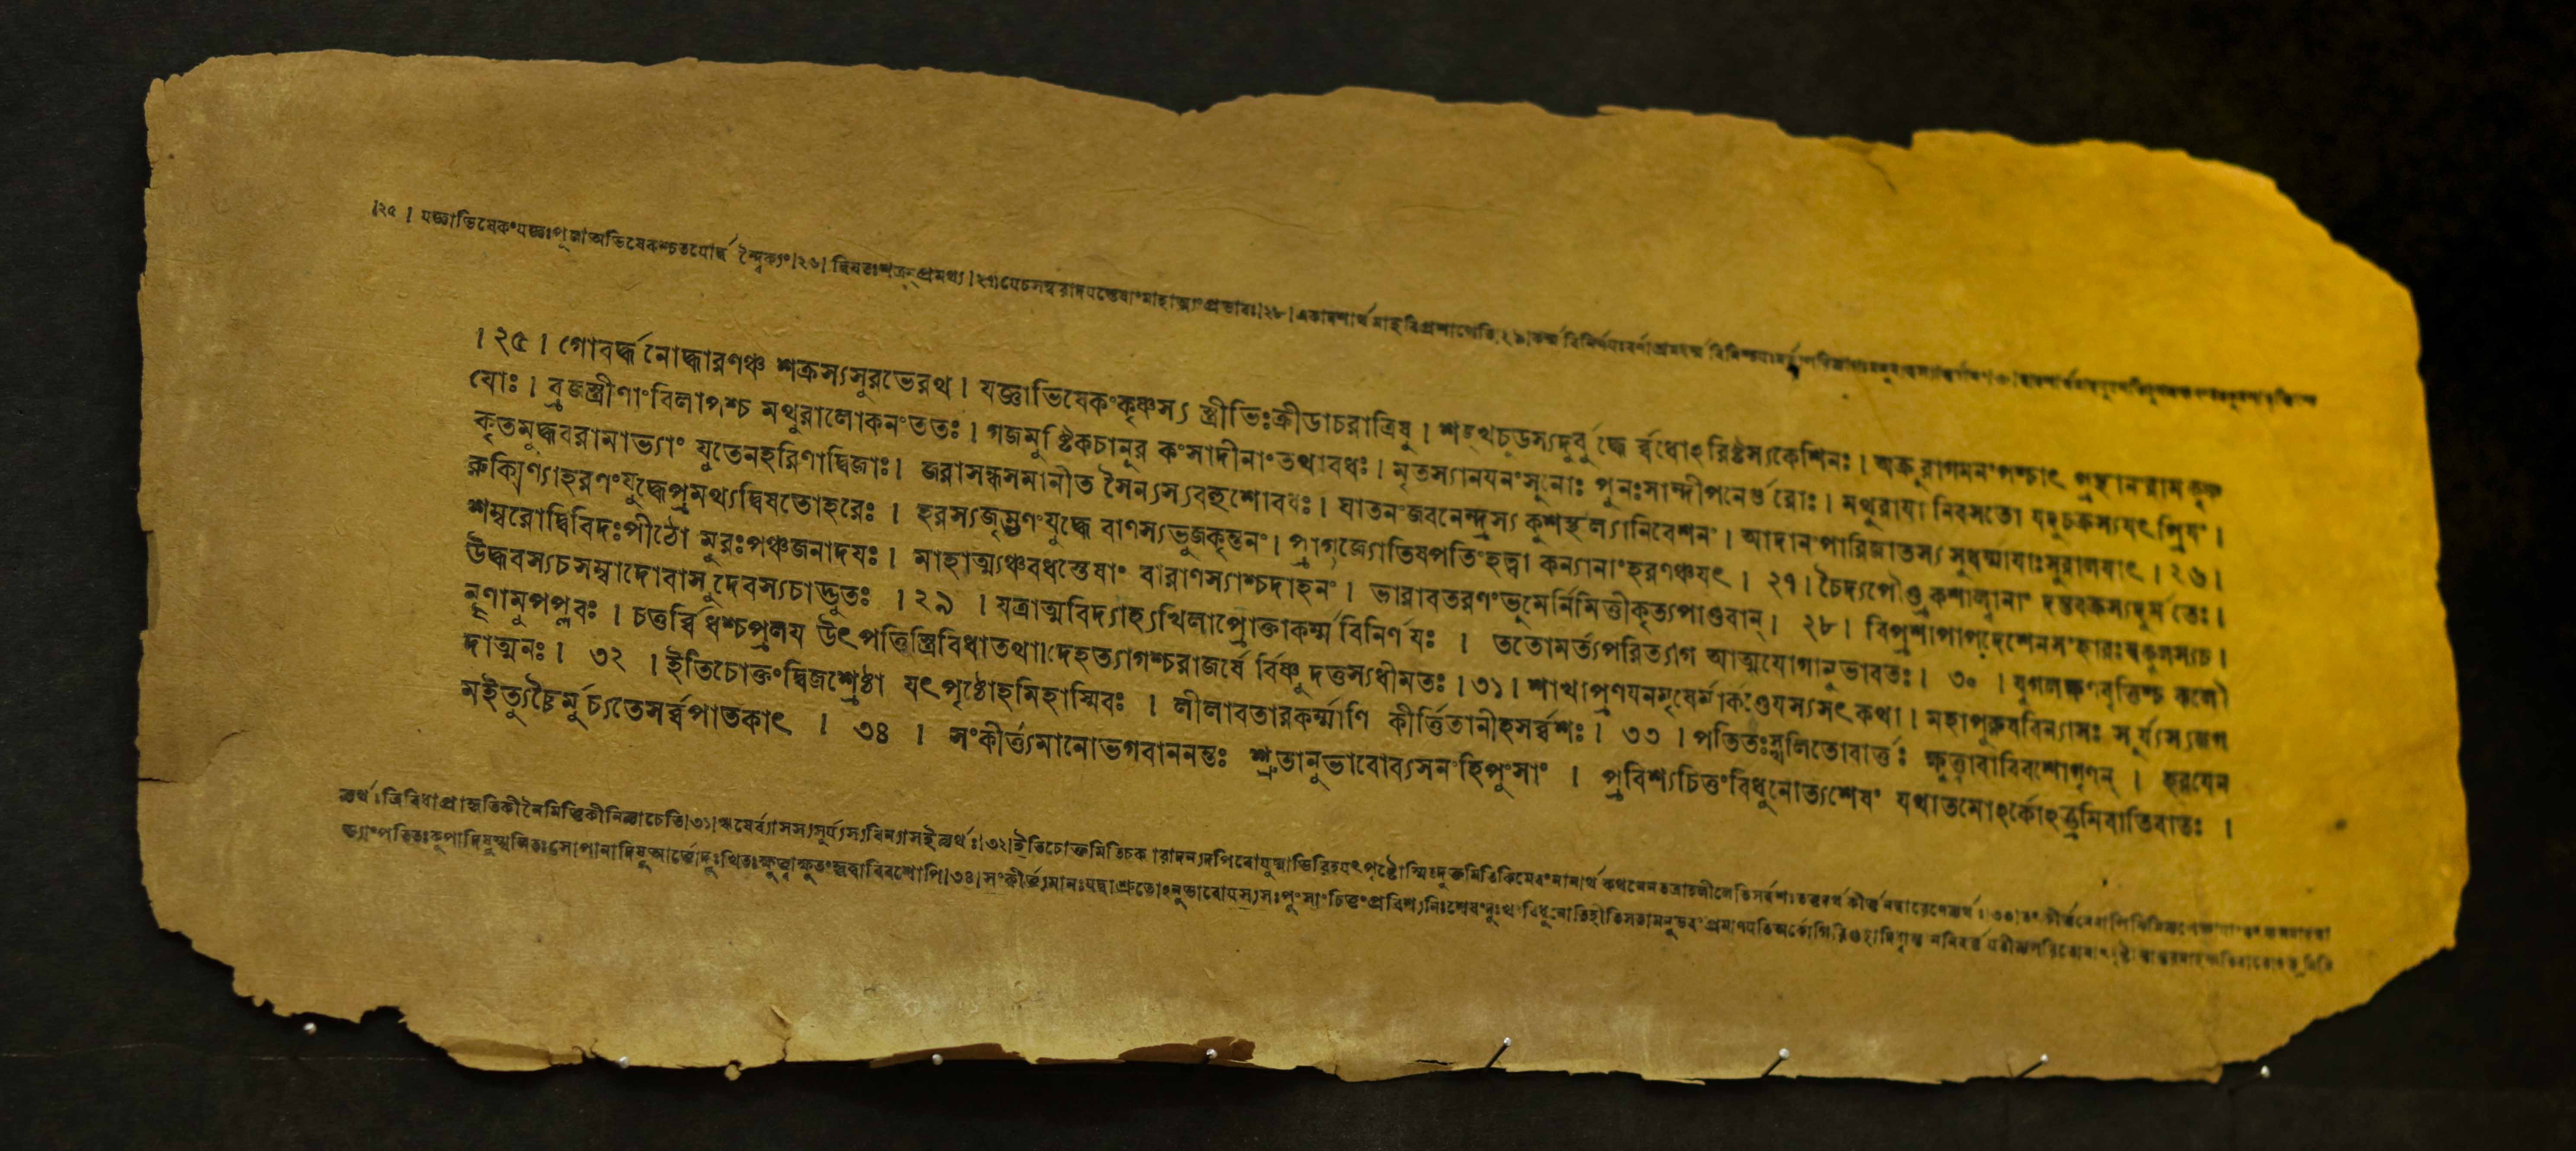 ।২৫ । যজ্ঞাভিষেকংযজ্ঞঃপূজাঅভিষেকশ্চতযোর্দ্বন্দ্বৈক্যং।২৬। দ্বিষতঃশত্রূন্প্রমথ্য।২৭।যেচসম্বরাদযস্তেষাংমাহাত্ম্যংপ্রভাবঃ।২৮।
। ২৫ । গোবর্দ্ধনোদ্ধারণঞ্চ শক্রস্যসুরভেরথ । যজ্ঞাভিষেকংকৃষ্ণস্য স্ত্রীভিঃক্রীডাচরাত্রিষু । শঙ্খচূডস্যদুর্বুদ্ধে র্ব্বধোঽরিষ্টস্যকেশিনঃ । অক্রূরাগমনংপশ্চাৎ প্রস্থানংরামকৃষ্ণ
যোঃ । ব্রজস্ত্রীণাংবিলাপশ্চ মথুরালোকনংততঃ । গজমুষ্টিকচানূর কংসাদীনাংতথাবধঃ । মৃতস্যানযনংসুনোঃ পুনঃসান্দীপনের্গুরোঃ । মথুরাযা নিবসতো যদুচক্রস্যযৎপ্রিযং ।
কৃতমুদ্ধবরামাভ্যাং যুতেনহরিণাদ্বিজাঃ । জরাসন্ধসমানীত সৈন্যস্যবহুশোবধঃ । ঘাতনংজবনেন্দ্রস্য কুশস্থল্যানিবেশনং । আদানংপারিজাতস্য সুধর্ম্মাযাঃসুরালযাৎ । ২৬ ।
রুক্মিণ্যাহরণংযুদ্ধেপ্রমথ্যদ্বিষতোহরেঃ । হরস্যজৃম্ভণংযুদ্ধে বাণস্যভুজকৃন্তনং । প্রাগ্জ্যোতিষপতিংহত্বা কন্যানাংহরণঞ্চযৎ । ২৭ । চৈদ্যপৌণ্ড্রকশাল্বানাং দন্তবক্রস্যদুর্মতেঃ ।
শম্বরোদ্বিবিদঃপীঠো মুরঃপঞ্চজনাদযঃ । মাহাত্ম্যঞ্চবধস্তেষাং বারাণস্যাশ্চদাহনং । ভারাবতরণংভুমের্নিমিত্তীকৃত্যপাণ্ডবান্ । ২৮ । বিপ্রশাপাপদেশেনসংহারঃস্বকুলস্যচ ।
উদ্ধবস্যচসম্বাদোবাসুদেবস্যচাদ্ভুতঃ । ২৯ । যত্রাত্মবিদ্যাহ্যখিলাপ্রোক্তাকর্ম্মবিনির্ণযঃ । ততোমর্ত্যপরিত্যাগ আত্মযোগানুভাবতঃ । ৩০ । যুগলক্ষণবৃত্তিশ্চ কলৌ
নৄণামুপপ্লবঃ । চতুর্ব্বিধশ্চপ্রলয উৎপত্তিস্ত্রিবিধাতথা।দেহত্যাগশ্চরাজর্ষে র্বিষ্ণুদত্তস্যধীমতঃ । ৩১ । শাখাপ্রণযনমৃষের্মার্কণ্ডেযস্যসৎকথা । মহাপুরুষবিন্যাসঃ সূর্য্যস্যজগ
দাত্মনঃ । ৩২ । ইতিচোক্তংদ্বিজশ্রেষ্ঠা যৎপৃষ্টোহমিহাস্মিবঃ । লীলাবতারকর্ম্মাণি কীর্ত্তিতানীহসর্ব্বশঃ । ৩৩ । পতিতঃস্খলিতোবার্ত্তঃ ক্ষুত্বাবাবিবশোগৃণন্ । হরযেন
মইত্যুচ্চৈর্মুচ্যতেসর্ব্বপাতকাৎ । ৩৪ । সংকীর্ত্ত্যমানোভগবাননন্তঃ শ্রুতানুভাবোব্যসনংহিপুংসাং । প্রবিশ্যচিত্তংবিধুনোত্যশেষং যথাতমোঽর্কোঽভ্রমিবাতিবাতঃ ।
ত্যর্থঃ।ত্রিবিধাপ্রাকৃতিকীনৈমিত্তিকীনিত্যাচেতি।৩১।ঋষের্ব্যাসস্যসূর্য্যস্যবিন্যাসইত্যর্থঃ।৩২।ইতিচোক্তমিতিচকারাদন্যদপি
ভ্যাংপতিতঃকূপাদিষুস্খলিতঃসোপানাদিষুআর্ত্তোদুঃখিতঃক্ষুত্বাক্ষুতংকৃত্বাবিবশোপি।৩৪।সংকীর্ত্ত্যমানঃযদ্বাশ্রুতোঽনুভাবোযস্যসঃপুংসাংচিত্তংপ্রবিশ্য